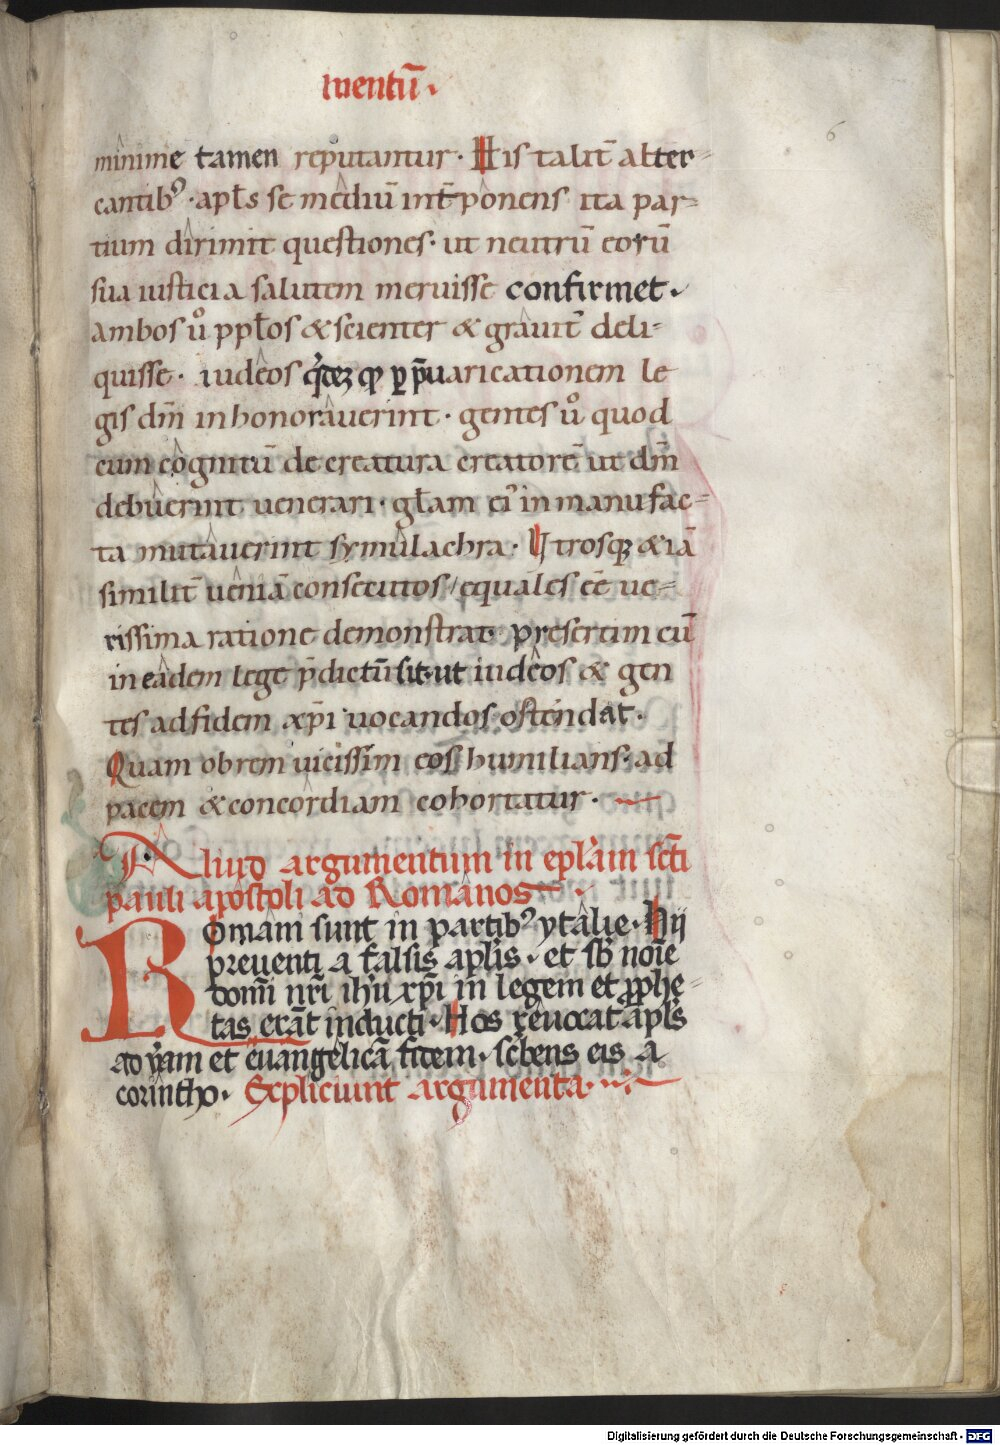 mentū.
6
minime tamen reputantur. His talit̄ alter-
cantibꝰ. apl̄s se mediū int̄ponens ita par-
tium dirimit questiones. ut neutrū eorū
sua iusticia salutem meruisse confirmet.
ambos uͦ ppl̄os & scienter & grauit̄ deli-
quisse. iudeos q̇deꝫ ꝙ ꝑ p̄uaricationem le
gis dm̄ inhonorauerint. gentes uͦ quod
cum cognitū de creatura creatorē ut dm̄
debuerint uenerari. gl̄am eiꝰ in manufac-
ta mutauerint symulachra. Vtrosqꝫ &iā
similit̄ ueniā consecutos/ equales eē ue-
rissima ratione demonstrat. presertim cū
in eadem lege p̄dictū sit. ut iudeos & gen
tes ad fidem xp̄i uocandos ostendat.
Quam obrem uicissim eos humilians. ad
pacem & concordiam cohortatur.
Aliud argumentum in epl̄am sc̄ti
pauli apostoli ad Romanos
Romani sunt in partibꝰ ytalie. Hij
preuenti a falsis apl̄is. et sb̄ noīe
domi nr̄i ihū xp̄i in legem et ꝓphe-
tas erāt inducti. Hos reuocat apl̄s
ad v̄am et euangelicā fidem. sc̄bens eis a
corintho. Expliciunt argumenta.
Digitalisierung gefördert durch die Deutsche Forschungsgemeinschaft - DFG